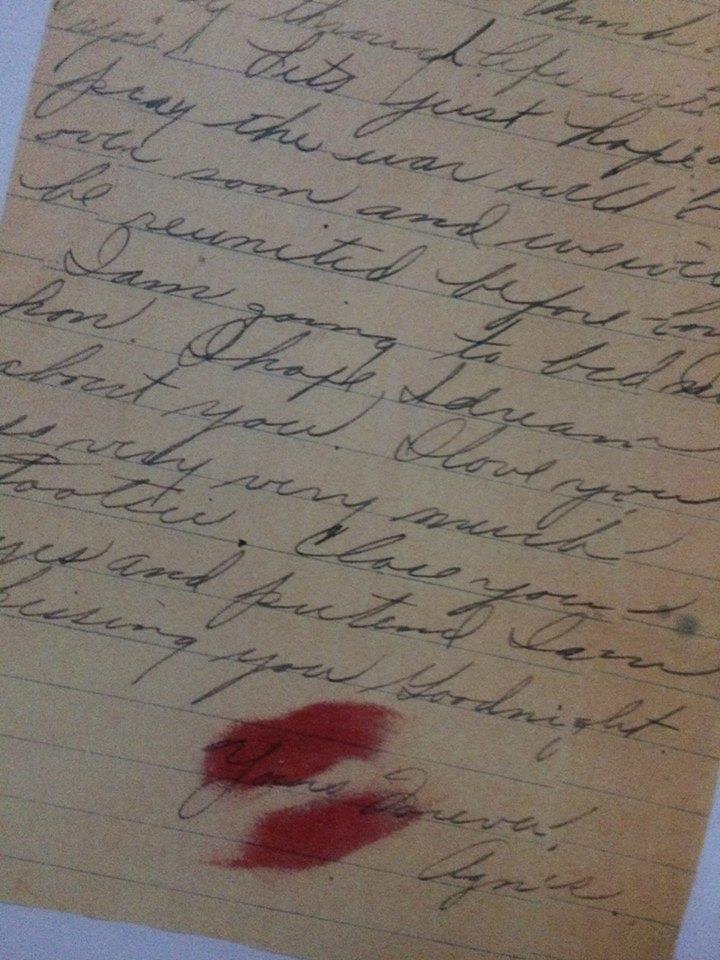 think
through life with
you! Lets just hope
pray the war will
over soon and we will
be reunited before
I am going to bed
hon. I hope I dream
about you. I love you
so very very much
Tootsie. Close your
eyes and pretend I am
kissing you Goodnight.
Yours Forever,
Agnes.